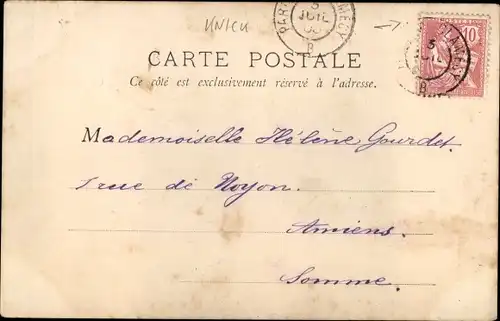 CARTE POSTALE
Ce côté est exclusivement réservé à l'adresse.
Mademoiselle Hélène Gourdet.
1 rue de Noyon.
Amiens.
Somme.
10